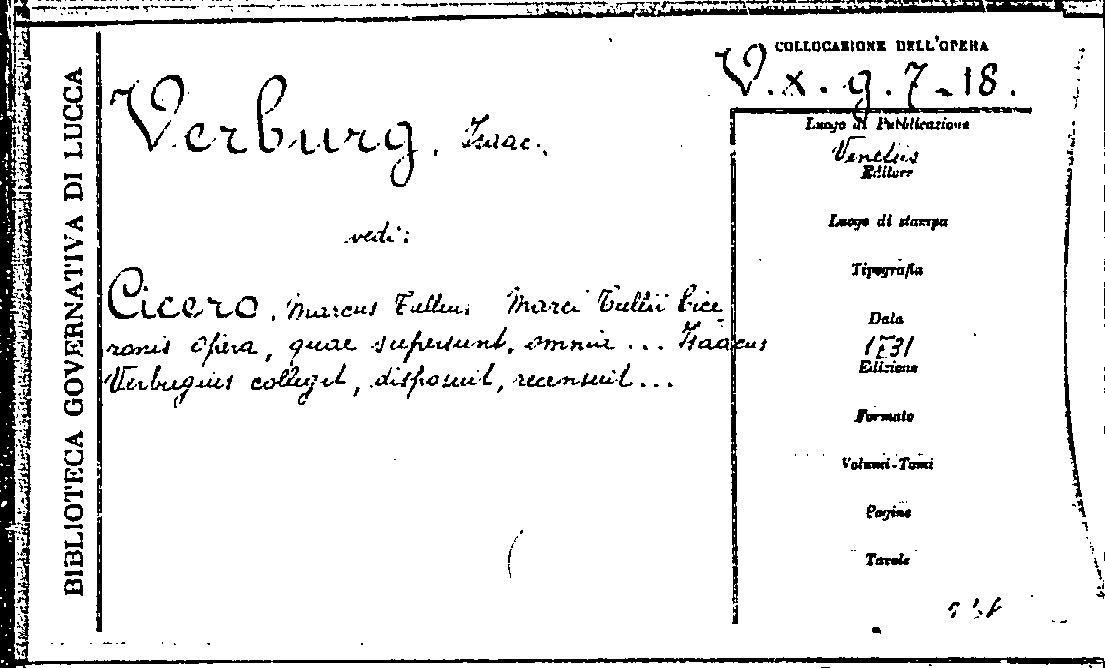 BIBLIOTECA GOVERNATIVA DI LUCCA
COLLOCAZIONE DELL'OPERA
V. x. g. 7-18.
Verburg, Isaac.
vedi:
Cicero, Marcus Tullius Marci Tullii Cice
ronis opera, quae supersunt, omnia ... Isaacus
Verbugius collegit, disposuit, recensuit...
Luogo di Pubblicazione
Venetiis
Editore
Luogo di stampa
Tipografia
Data
1731
Edizione
Formato
Volumi-Tomi
Pagine
Tavole